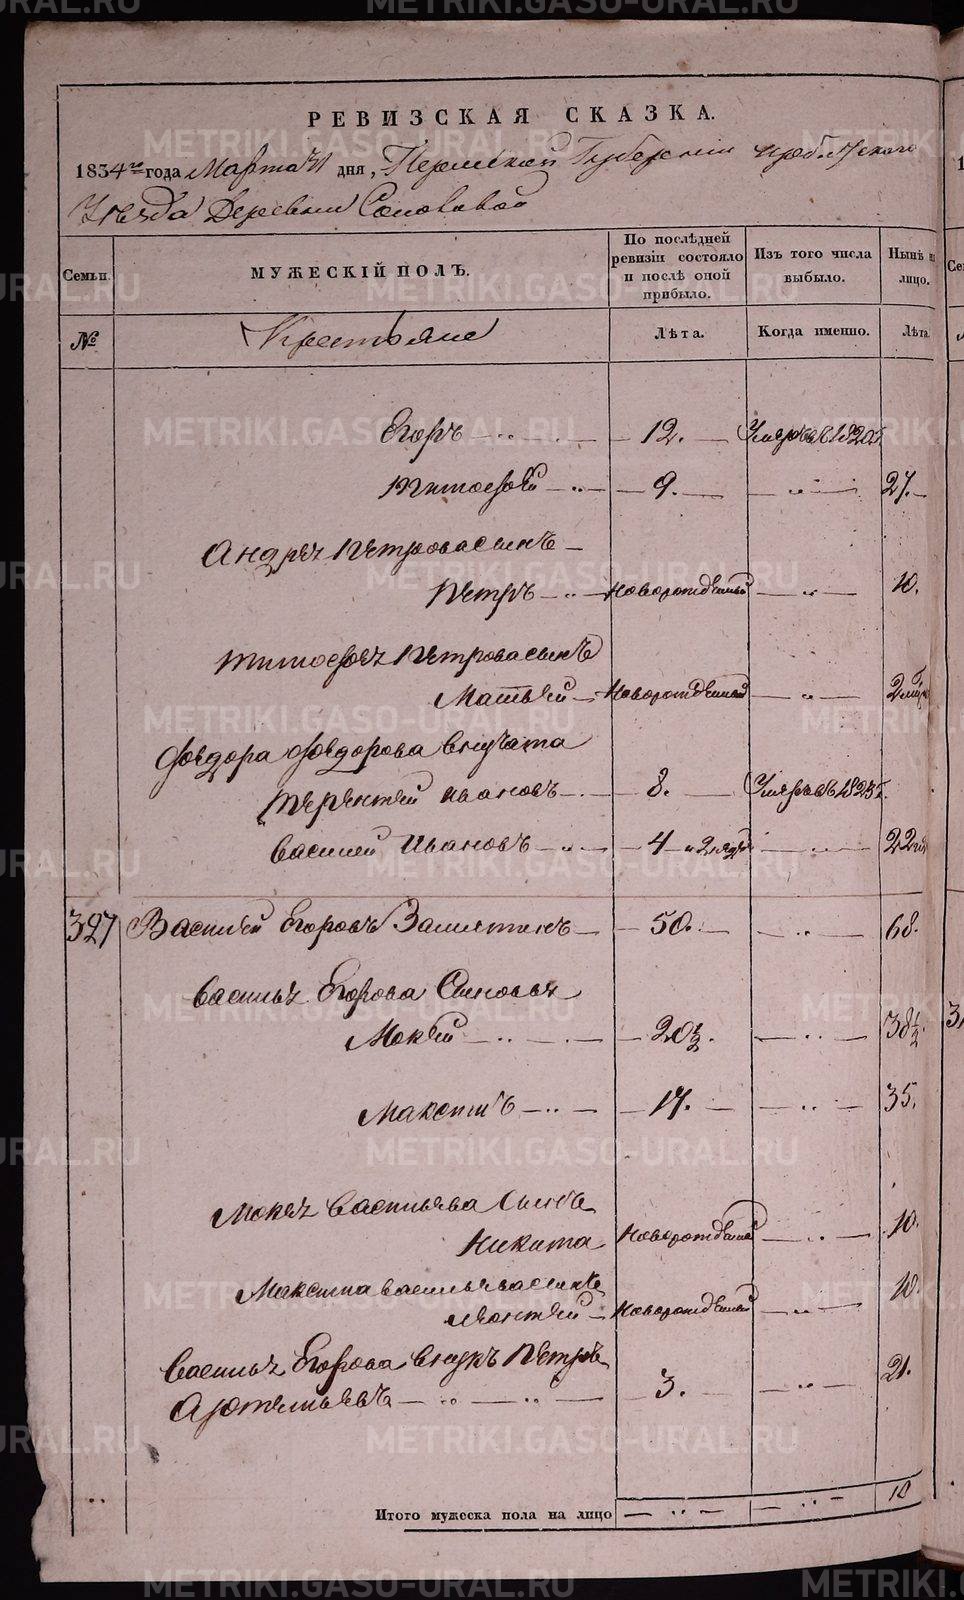 РЕВИЗСКАЯ СКАЗКА.
1834го года Марта дня, Пермской Губернии Ирбитского
Уезда Деревни Соловьевой
Семьи.
МУЖЕСКІЙ ПОЛЪ.
По послѣдней ревизіи состояло и послѣ оной прибыло.
Изъ того числа выбыло.
Нынѣ на лицо.
№
Крестьяне
Лѣта.
Когда именно.
Лѣта
Егоръ 12. Умеръ въ 1820г.
Тимофей 9. 27.
Андрея Петрова сынъ
Петръ новорожденный 10.
Тимофея Петрова сынъ
Матвей новорожденный
Федора Федорова внучата
Терентей Ивановъ 8. Умеръ въ
Василей Ивановъ 4 22
327 Василий Егоровъ Замятинъ 50. 68.
Василья Егорова Сыновья
Мокей 20½. 38½.
Максимъ 17. 35.
Мокея Васильева Сынъ
Никита Новорожденный 10.
Максима Васильева сынъ
Леонтей Новорожденный 10.
Василья Егорова внукъ Петръ
Артемьевъ 3. 21.
Итого мужеска пола на лицо 10
METRIKI.GASO-URAL.RU